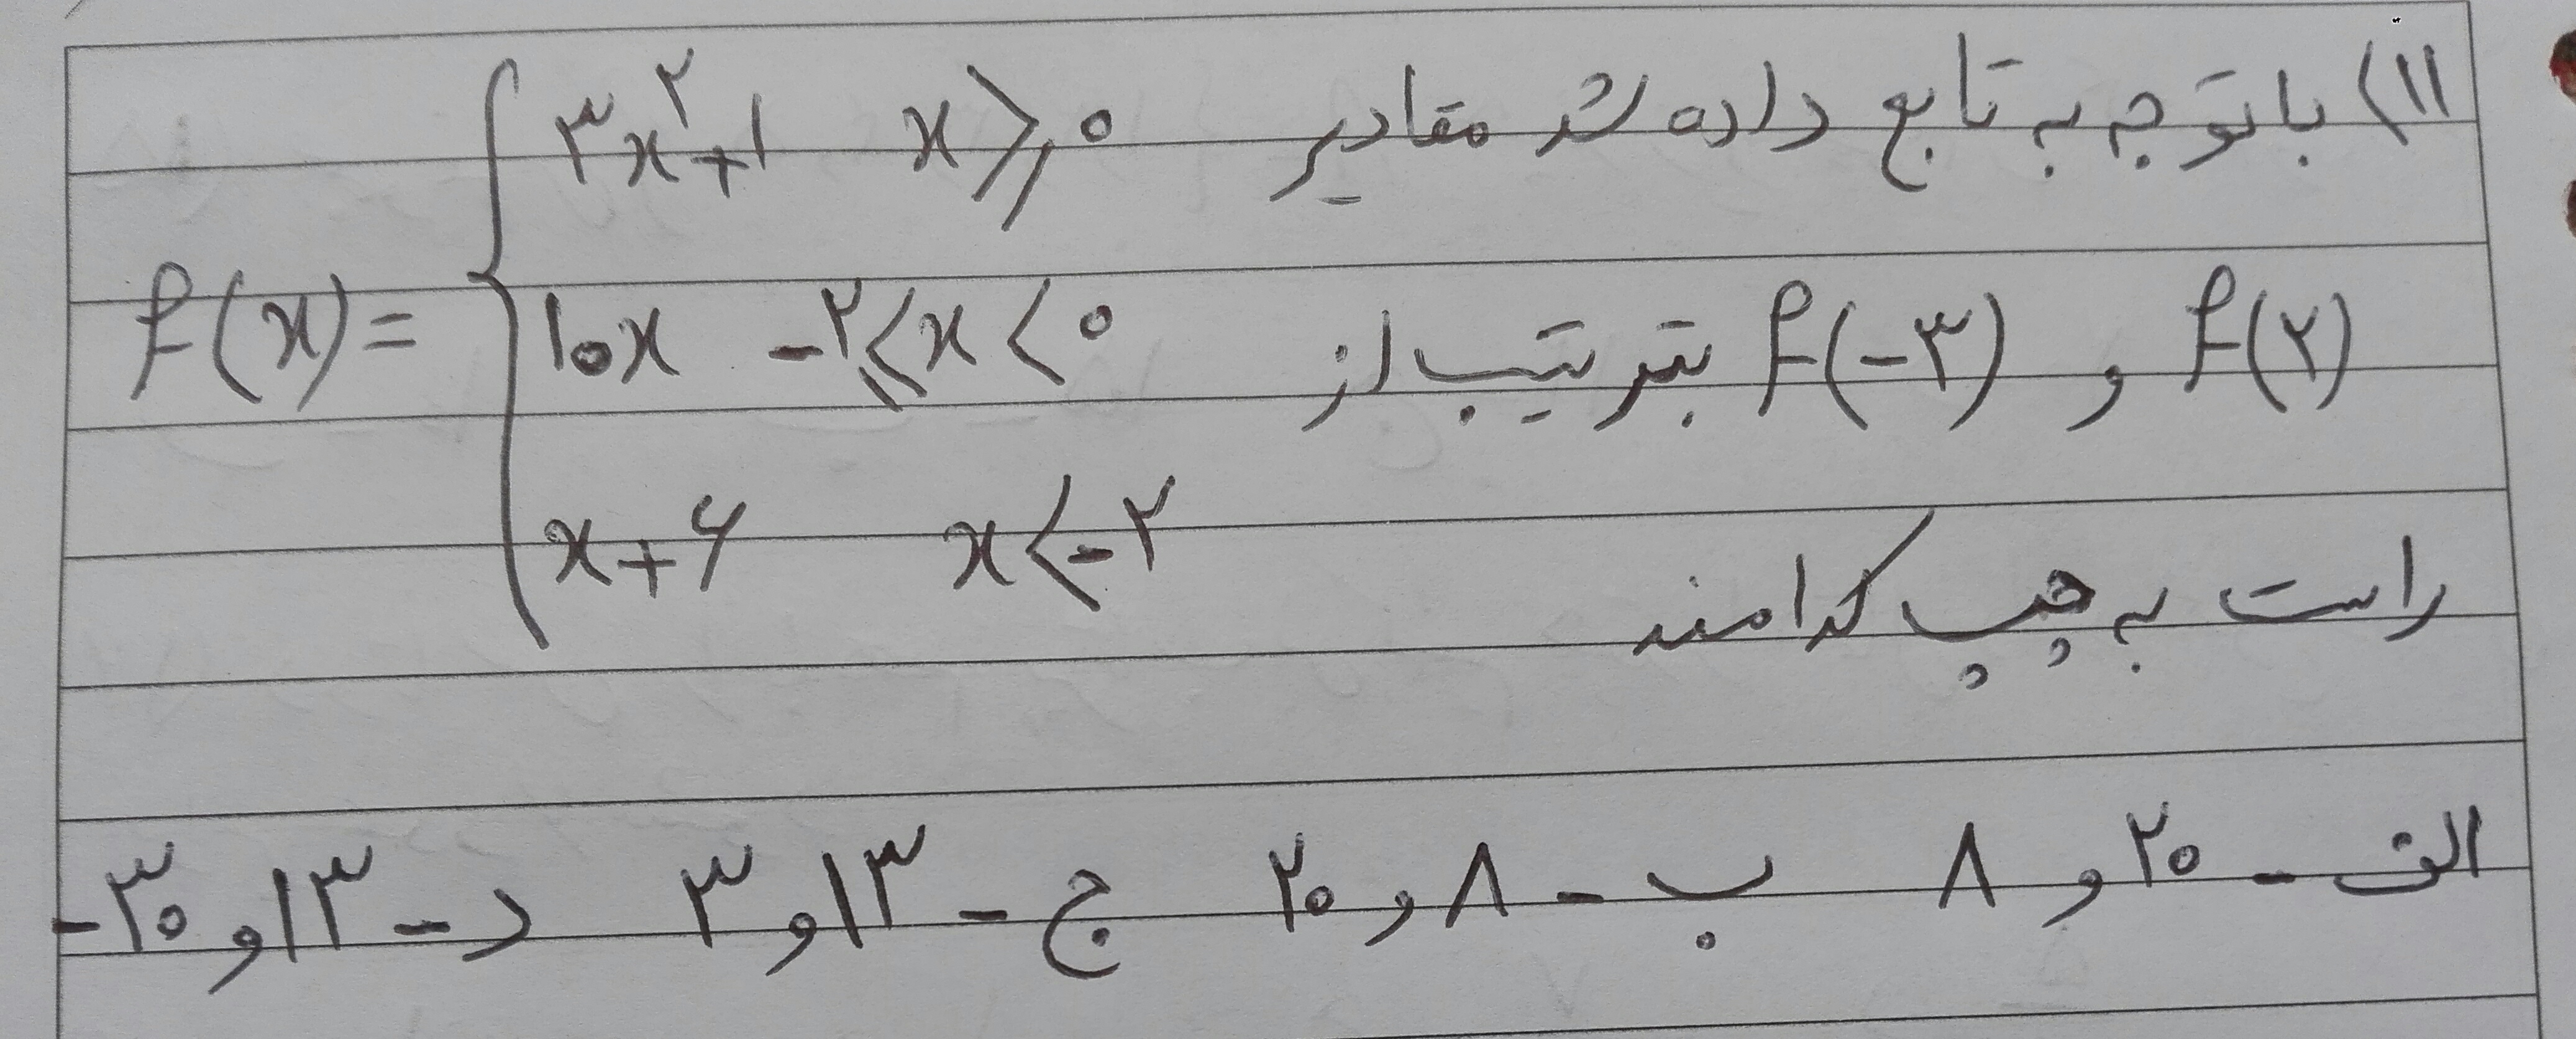 ۱۱) با توجه به تابع داده شد مقادیر
f(۲) و f(-۳) بترتیب از
راست به چپ کدامند
۳x²+۱ x≥۰
f(x)= { ۱۰x -۲≤x<۰
x+۶ x<-۲
الف - ۲۰ و ۸ ب - ۸ و ۲۰ ج - ۱۳ و ۳ د - ۱۳ و ۳۰-